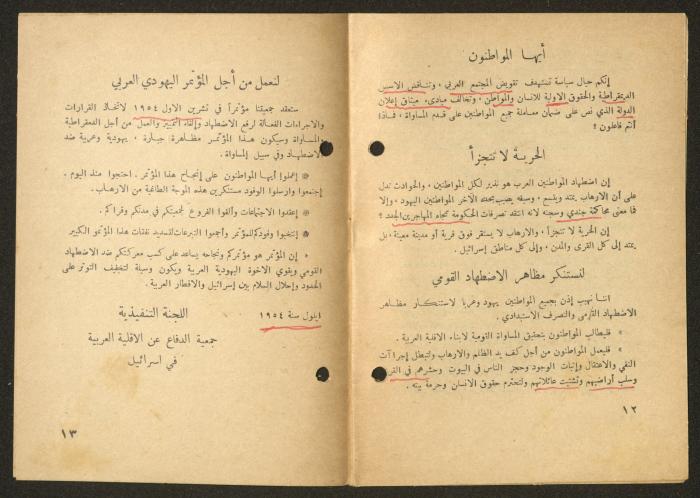 أيها المواطنون
إنكم حيال سياسة تستهدف تقويض المجتمع العربي ، وتناقض الاسس
الديمقراطية والحقوق الاولية للانسان والمواطن ، وتخالف مبادىء ميثاق إعلان
الدولة الذي نص على ضمان معاملة جميع المواطنين على قدم المساواة ، فماذا
أنتم فاعلون ؟
الحرية لا تتجزأ
إن اضطهاد المواطنين العرب هو نذير لكل المواطنين ، والحوادث تدل
على أن الارهاب يمتد ويتسع ، وسيفه يصيب بحده الآخر المواطنين اليهود ، وإلا
فما معنى محاكمة جندي وسجنه لانه انتقد تصرفات الحكومة تجاه المهاجرين الجدد ؟
إن الحرية لا تتجزأ ، والارهاب لا يستقر فوق قرية أو مدينة معينة ، بل
يمتد إلى كل القرى والمدن ، وإلى كل مناطق إسرائيل .
لنستنكر مظاهر الاضطهاد القومي
اننا نهيب إذن بجميع المواطنين يهود وعربا لاستنكار مظاهر
الاضطهاد القومي والتصرف الاستبدادي .
* فليطالب المواطنون بتحقيق المساواة القومية لابناء الاقلية العربية .
* فليعمل المواطنون من أجل كف يد الظلم والارهاب ولتبطل إجراآت
النفي والاعتقال وإثبات الوجود وحجز الناس في البيوت وحشرهم في القرى
وسلب أراضيهم وتشتيت عائلاتهم ولتحترم حقوق الانسان وحرمة بيته .
١٢
لنعمل من أجل المؤتمر اليهودي العربي
ستعقد جمعيتنا مؤتمراً في تشرين الاول ١٩٥٤ لاتخاذ القرارات
والاجراءات الفعالة لرفع الاضطهاد وإلغاء التمييز والعمل من أجل الديمقراطية
والمساواة وسيكون هذا المؤتمر مظاهرة جبارة ، يهودية وعربية ضد
الاضطهاد وفي سبيل المساواة .
* إعملوا أيها المواطنون على إنجاح هذا المؤتمر . احتجوا منذ اليوم .
إجتمعوا وارسلوا الوفود مستنكرين هذه الموجة الطاغية من الارهاب .
* إعقدوا الاجتماعات وألفوا الفروع لجمعيتكم في مدنكم وقراكم .
* إنتخبوا وفودكم للمؤتمر وأجمعوا التبرعات لتسديد نفقات هذا المؤتمر الكبير
* إن المؤتمر هو مؤتمركم ونجاحه يساعد على كسب معركتكم ضد الاضطهاد
القومي ويقوي الاخوة اليهودية العربية ويكون وسيلة لتخفيف التوتر على
الحدود وإحلال السلام بين إسرائيل والاقطار العربية .
ايلول سنة ١٩٥٤
اللجنة التنفيذية
جمعية الدفاع عن الاقلية العربية
في اسرائيل
١٣